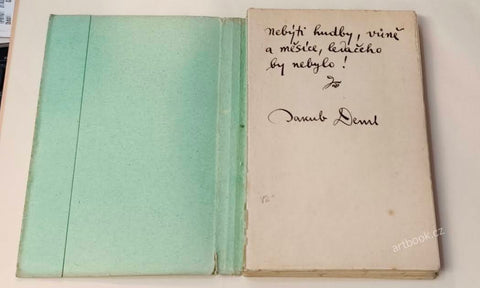 Nebýti hudby, vůně
a měsíce, lecčeho
by nebylo!
Jakub Deml
artbook.cz